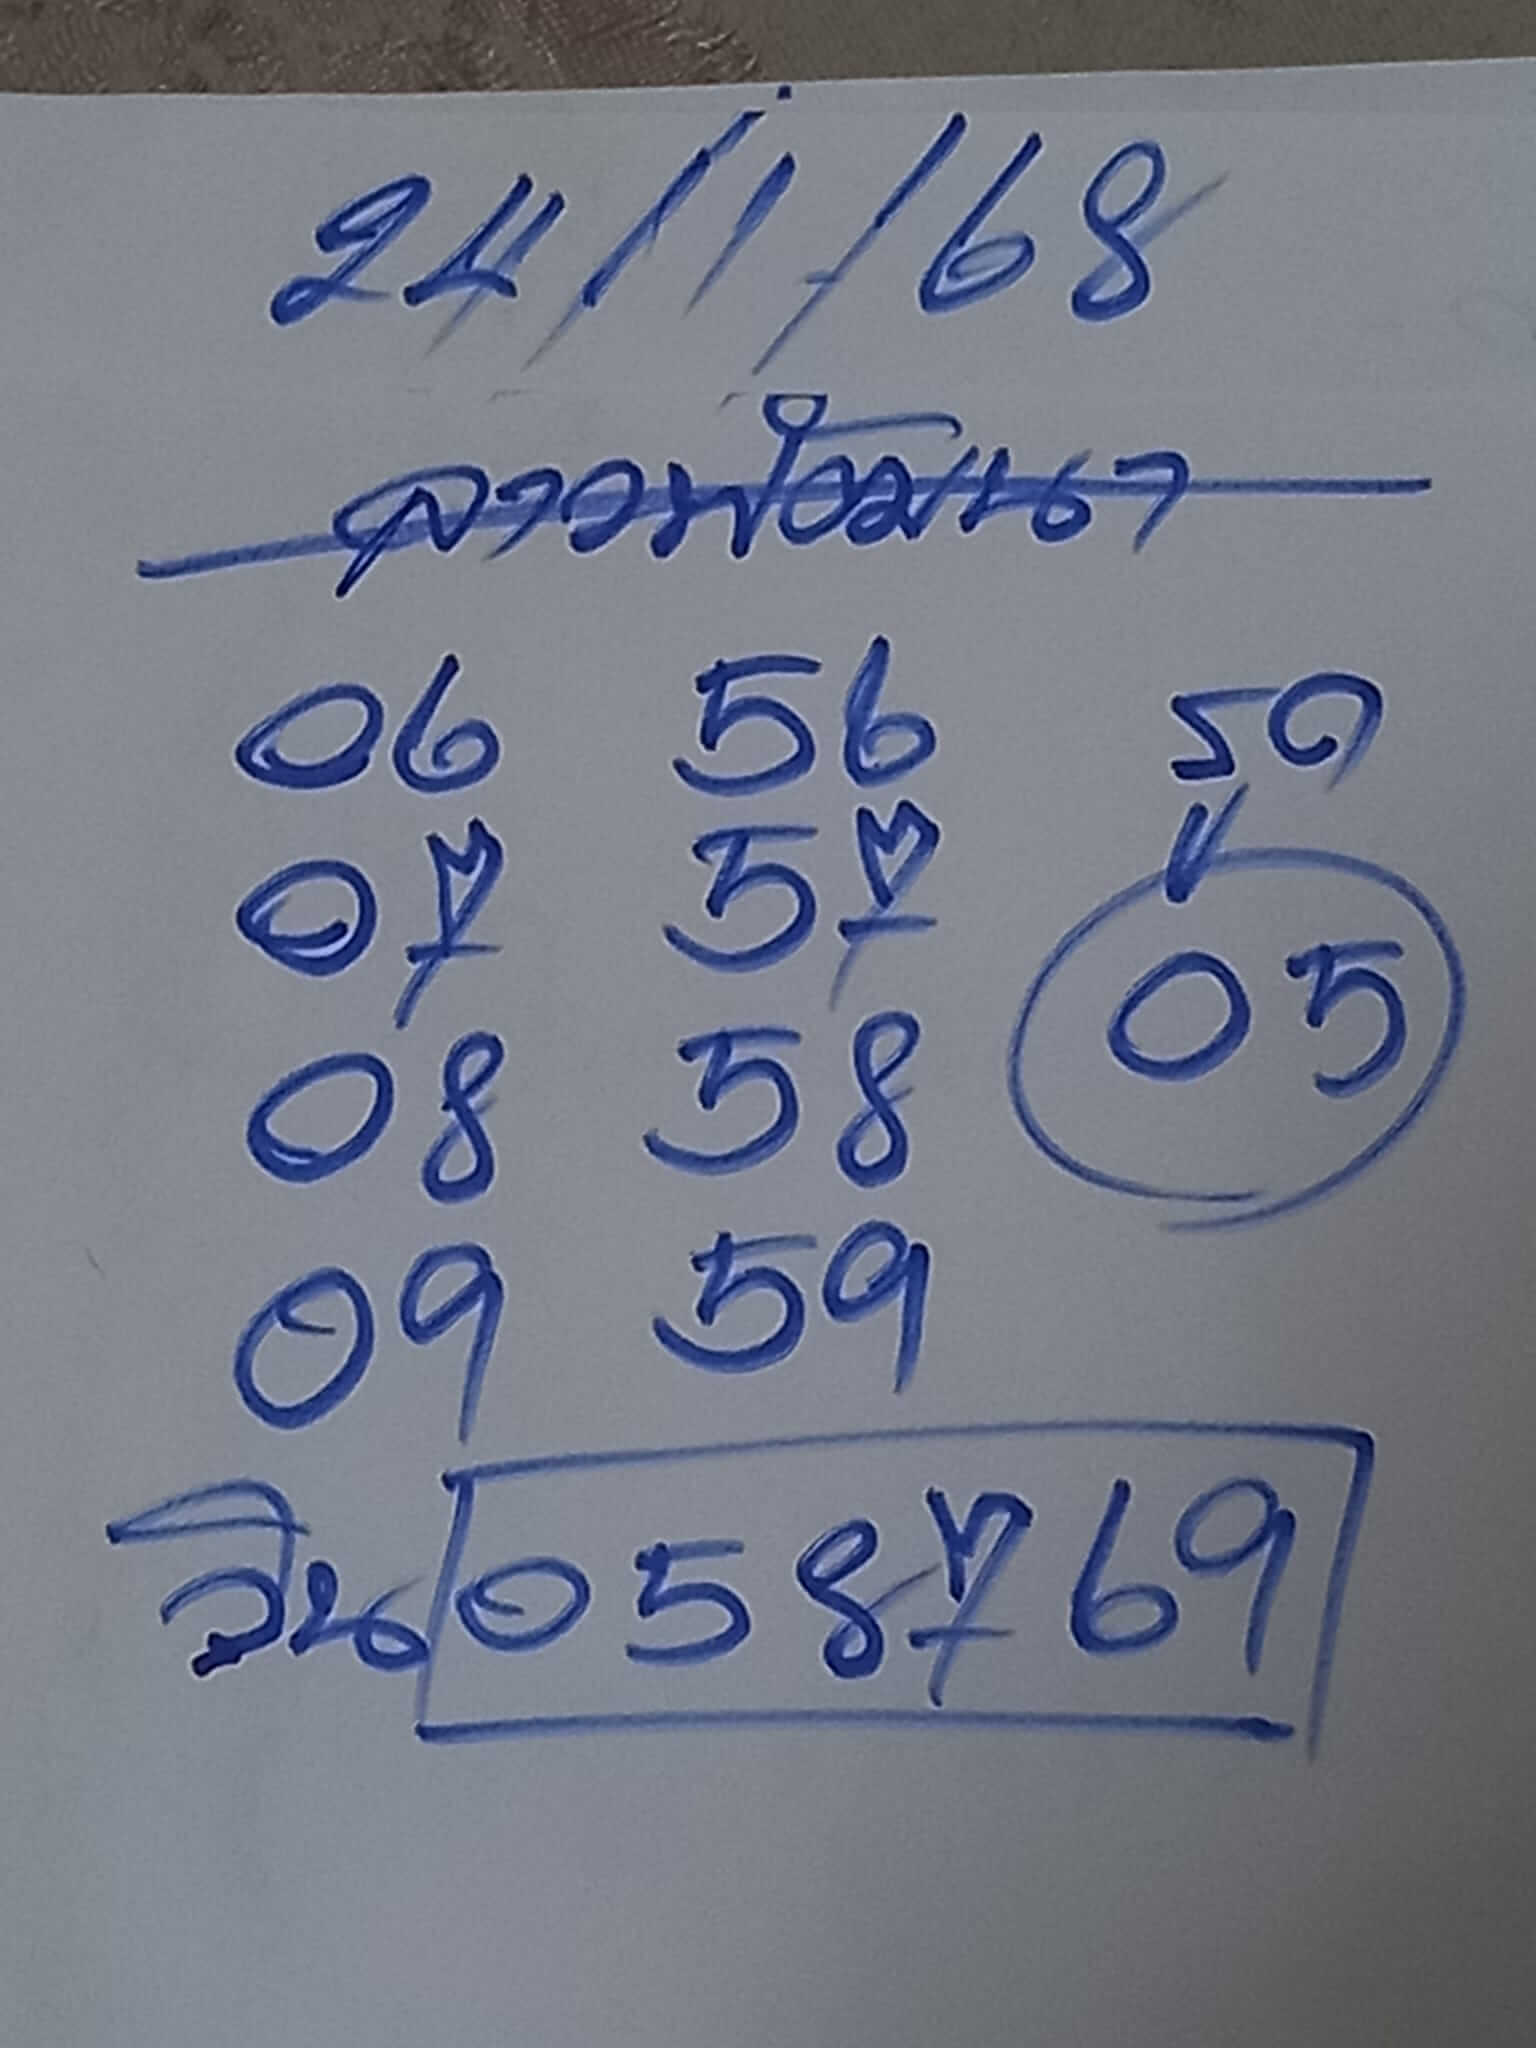 24/1/68
ลาวพัฒนา
06 56 รูด
07 57
08 58 05
09 59
วิน 058769